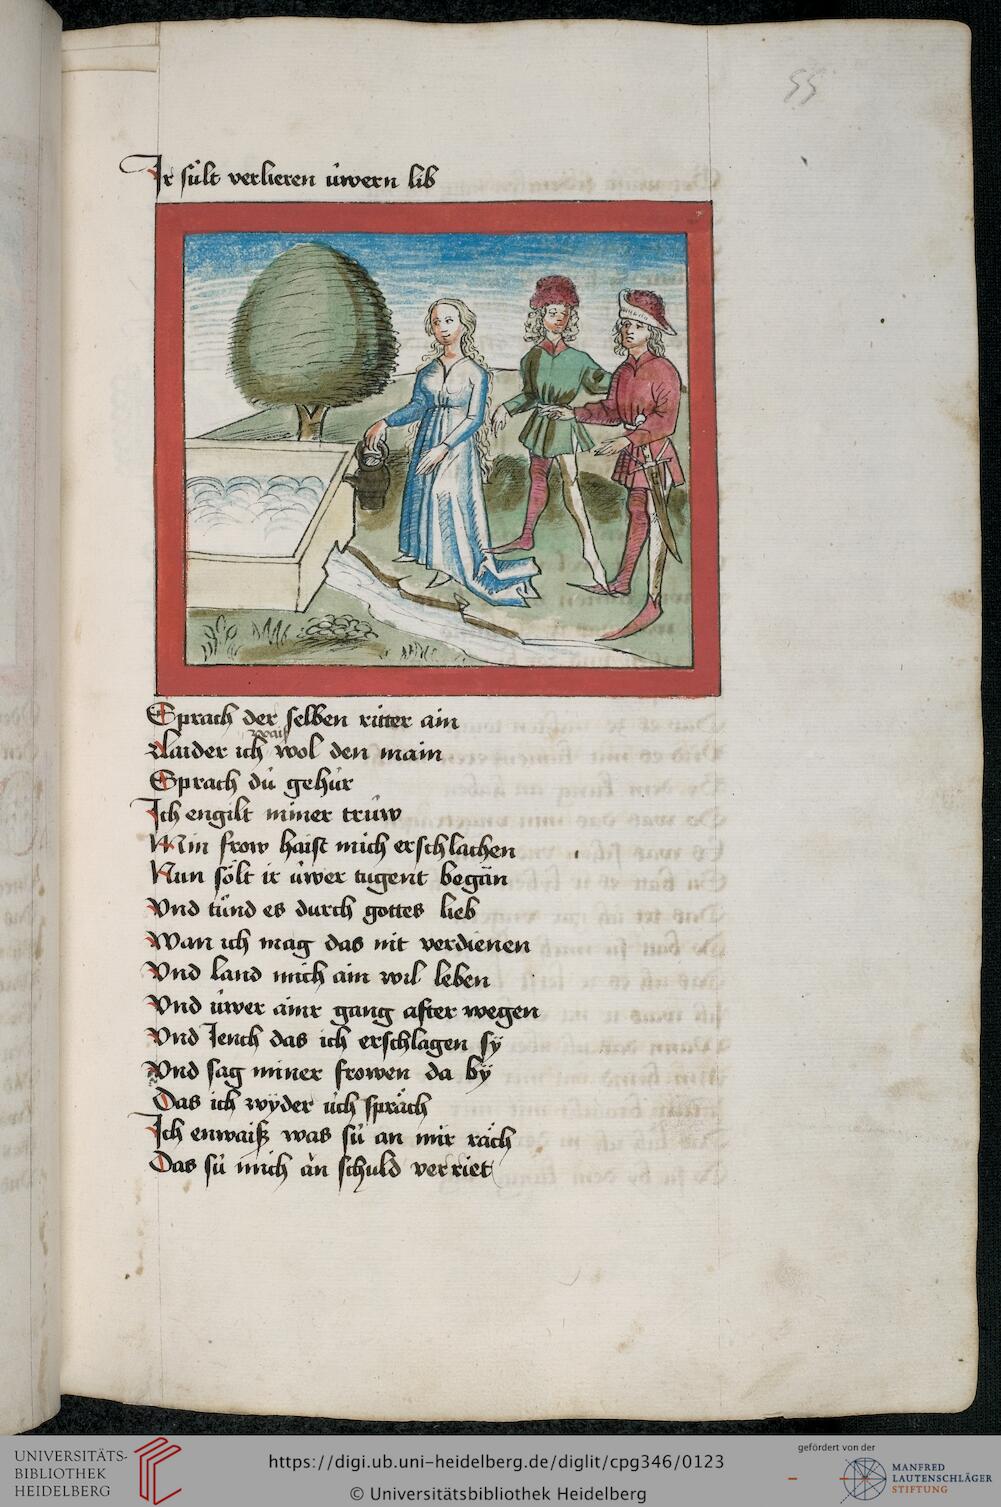 55
Ir sült verlieren üwern lib
Sprach der selben ritter ain
waiß
Laider ich wol den main
Sprach dü gehür
Ich engilt miner trüw
Min frow haist mich erschlachen
Nun sölt ir üwer tugent began
Vnd tünd es durch gottes lieb
Wan ich mag das nit verdienen
Vnd land mich ain wil leben
Vnd üwer ainr gang after wegen
Vnd Jench das ich erschlagen sÿ
Vnd sag miner frowen da bÿ
Das ich wÿder üch spräch
Ich enwaiß was sü an mir räch
Das sü mich än schuld verriet
UNIVERSITÄTS-
BIBLIOTHEK
HEIDELBERG
https://digi.ub.uni-heidelberg.de/diglit/cpg346/0123
© Universitätsbibliothek Heidelberg
gefördert von der
MANFRED
LAUTENSCHLÄGER
STIFTUNG